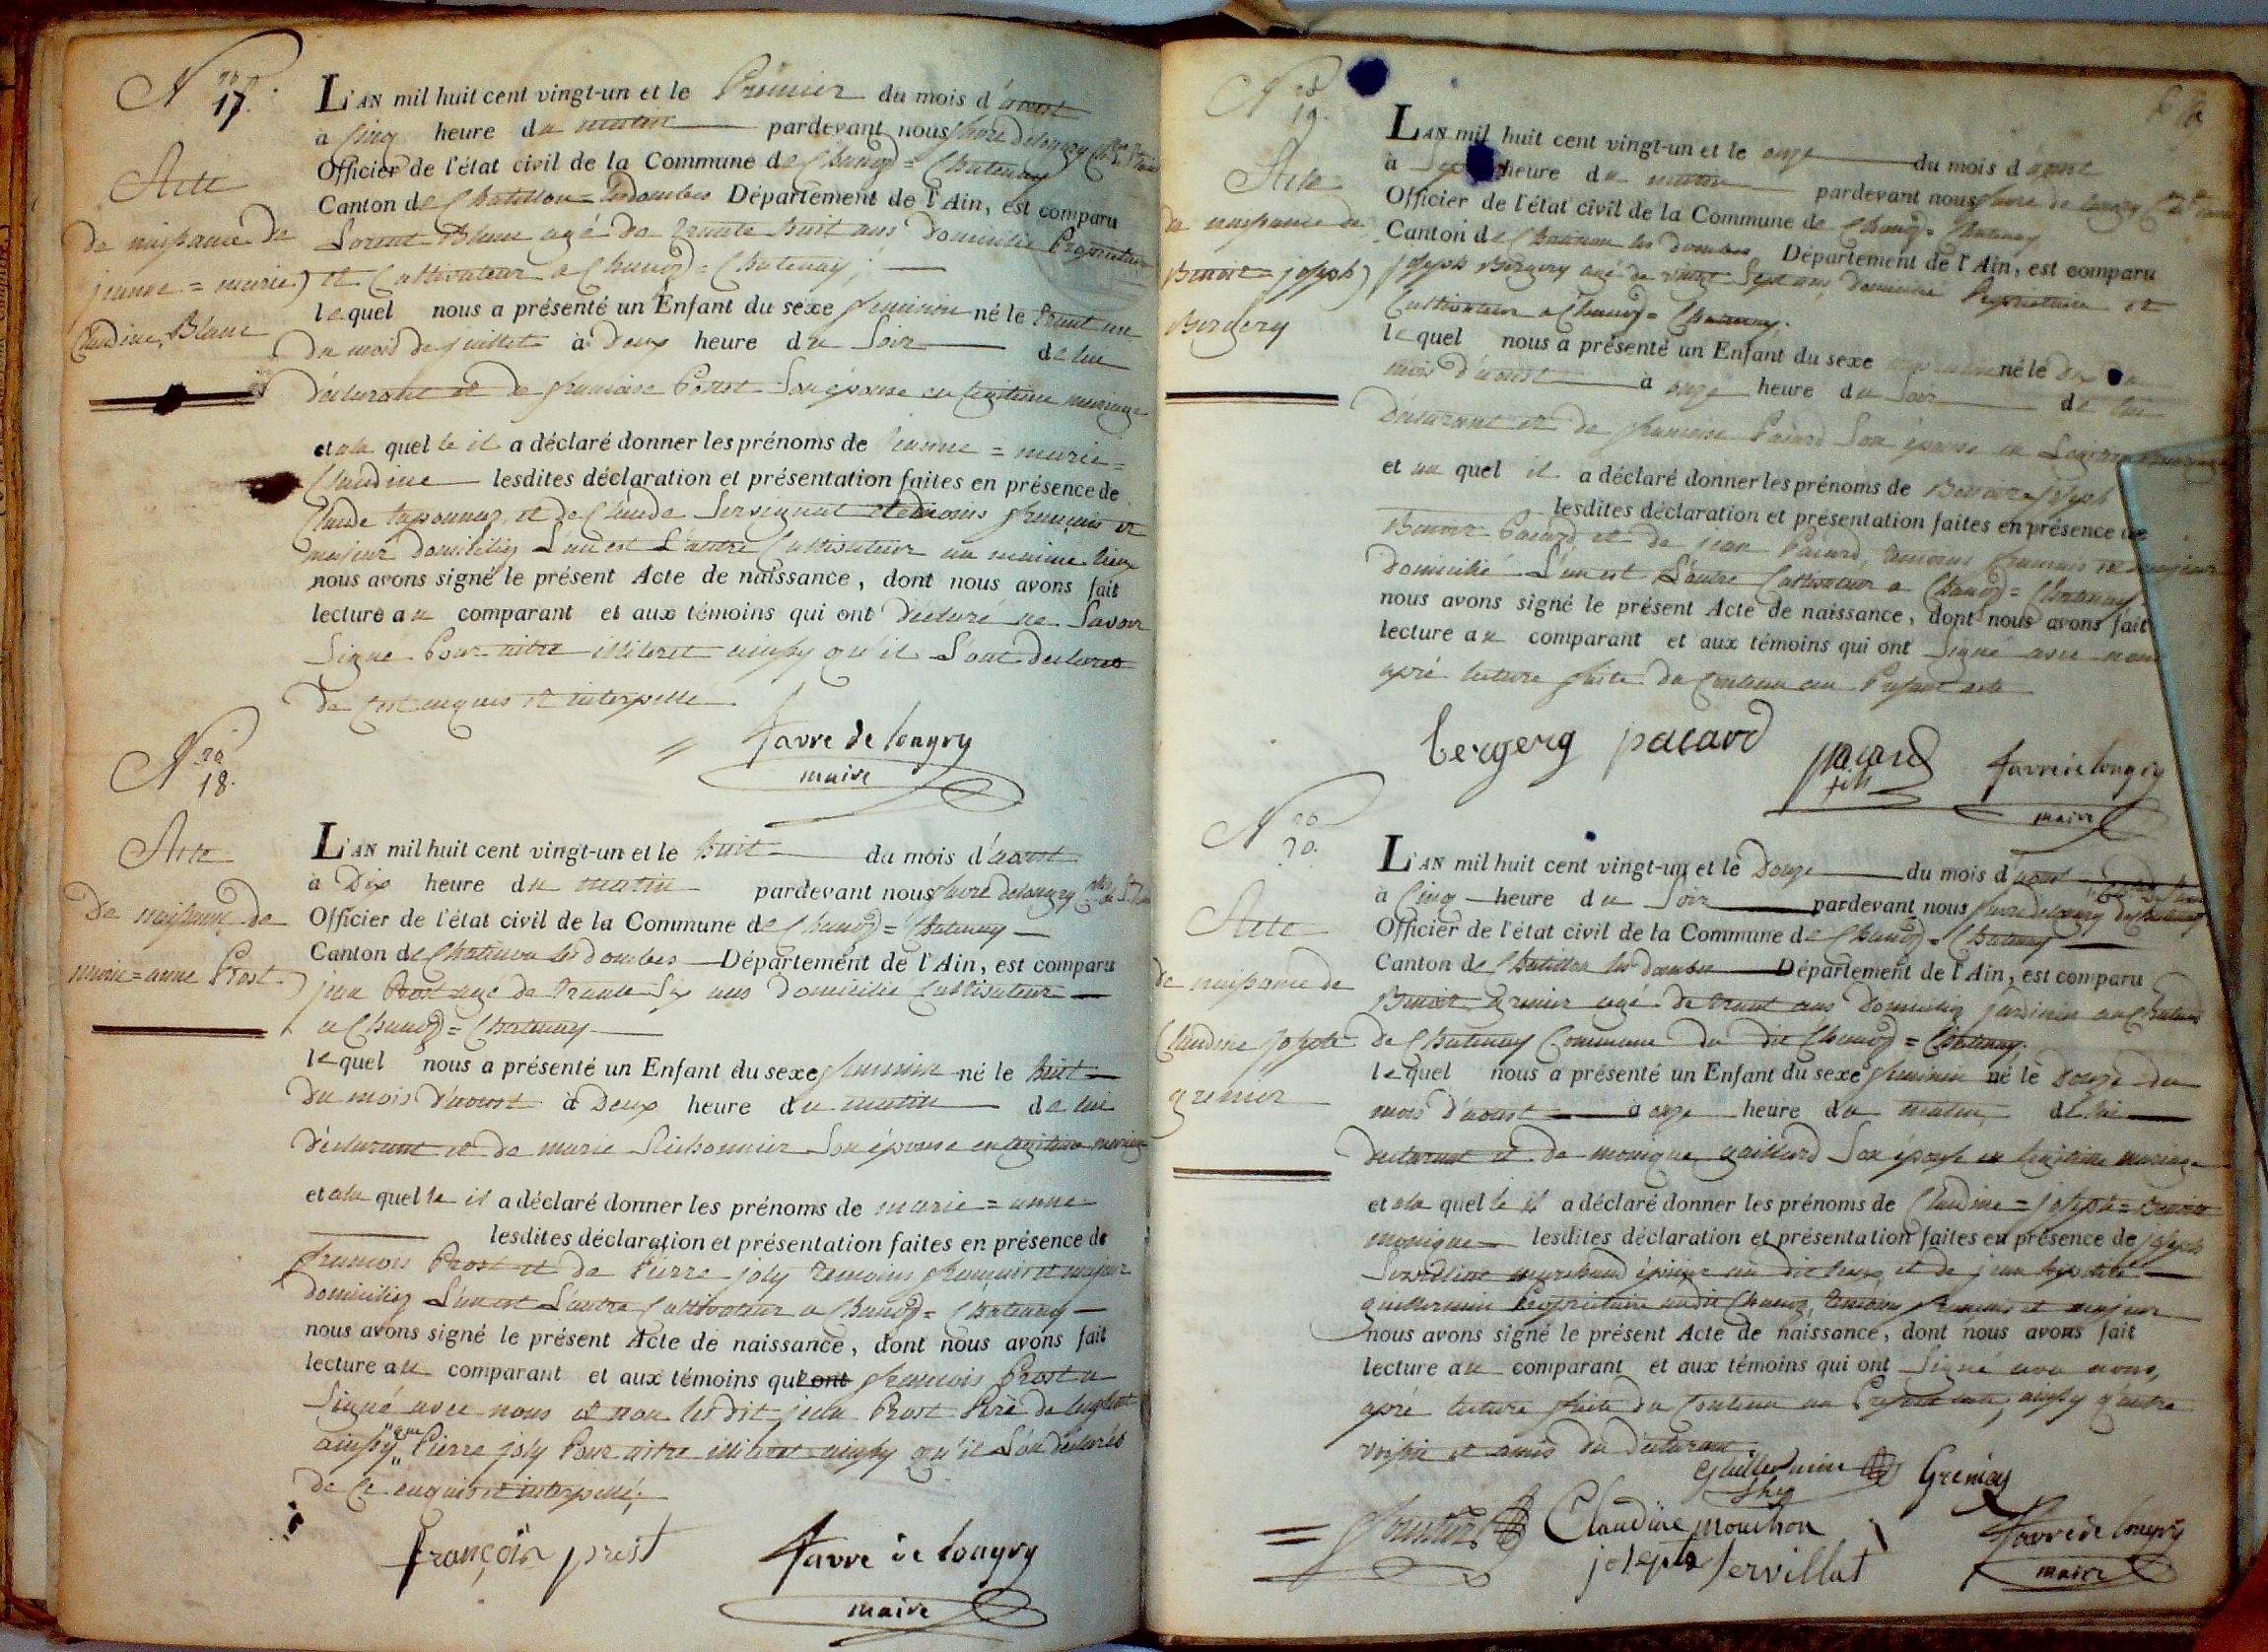 N.ro
17.
Acte
de naissance de
jeanne = marie
Claudine Blanc
L'AN mil huit cent vingt-un et le Premier du mois d'aoust
à Cinq heure du matin pardevant nous favre delongry
Officier de l'état civil de la Commune de Chanoz = Chatenay
Canton de Chatillon = les dombes Département de l'Ain, est comparu
Lorent Blanc agé de Trante huit ans domicilié Propriétaire
et Cultivateur a Chanoz = Chatenay ;
lequel nous a présenté un Enfant du sexe feminin né le Trant un
du mois de juillet à Deux heure du Soir de lui
déclarant et de francoise Son épouse en legitime mariage
et a la quel le il a déclaré donner les prénoms de jeanne = marie =
Claudine lesdites déclaration et présentation faites en présence de
Claude taponnaz, et de Claude Servignat temoins francais et
majeur domiciliez L'un est L'autre Cultivateur au meme lieux
nous avons signé le présent Acte de naissance, dont nous avons fait
lecture au comparant et aux témoins qui ont déclaré ne Savoir
Signe Pour aitre illiteret ainsy qu'il L'ont declaré
de enquis et interpelle
favre de longry
maire
N.ro
18.
Acte
de naissance de
marie = anne Prost
L'AN mil huit cent vingt-un et le huit du mois d'aoust
à Dix heure du matin pardevant nous favre delongry
Officier de l'état civil de la Commune de Chanoz = Chatenay
Canton de Chatillon les dombes Département de l'Ain, est comparu
jean Prost agé de Trante Six ans domicilié Cultivateur
a Chanoz = Chatenay
lequel nous a présenté un Enfant du sexe feminin né le huit
du mois d'aoust à Deux heure du matin de lui
déclarant et de marie Son épouse en legitime mariage
et a la quel le il a déclaré donner les prénoms de marie = anne
lesdites déclaration et présentation faites en présence de
francois Prost et de Pierre joly temoins francais et majeur
domiciliez L'un est L'autre Cultivateur a Chanoz = Chatenay
nous avons signé le présent Acte de naissance, dont nous avons fait
lecture au comparant et aux témoins qui ont francois Prost a
Signé avec nous et non les dit jean Prost Père de
ainsy que Pierre joly Pour aitre ainsy qu'il L'on declaré
de Ce enquis et interpellé,
françois prost
favre de longry
maire
N.ro
19.
Acte
de naissance de
Benoit = joseph
Bergery
L'AN mil huit cent vingt-un et le onze du mois d'aoust
à heure du matin pardevant nous favre de longry
Officier de l'état civil de la Commune de Chanoz = Chatenay
Canton de Chatillon les dombes Département de l'Ain, est comparu
joseph Bergery agé de vingt Sept ans domicilié Propriétaire et
Cultivateur a Chanoz = Chatenay.
lequel nous a présenté un Enfant du sexe né le dix du
mois d'aoust à onze heure du Soir de lui
déclarant et de francoise Pacard Son épouse en Legitime mariage
et au quel il a déclaré donner les prénoms de Benoit joseph
lesdites déclaration et présentation faites en présence de
Benoit Pacard et de jean Pacard, temoins francais et majeur
domicilié L'un est L'autre Cultivateur a Chanoz = Chatenay
nous avons signé le présent Acte de naissance, dont nous avons fait
lecture au comparant et aux témoins qui ont Signé avec nous
apré lecture faite du Contenu au Présent acte
bergerg pacard pacard fils favre de longry
maire
N.ro
20.
Acte
de naissance de
Claudine joseph
grenier
L'AN mil huit cent vingt-un et le Douze du mois d'aoust
à Cinq heure du Soir pardevant nous favre de longry
Officier de l'état civil de la Commune de Chanoz = Chatenay
Canton de Chatillon les dombes Département de l'Ain, est comparu
Benoit Grenier agé de trant ans domiciliez jardinier au Chateau
de Chatenay Commune du dit Chanoz = Chatenay,
lequel nous a présenté un Enfant du sexe feminin né le Douze du
mois d'aoust à onze heure du matin de lui
declarant et de monique gaillard Son épouse en legitime mariage
et a la quel le il a déclaré donner les prénoms de Claudine = joseph = Benoite
monique lesdites déclaration et présentation faites en présence de joseph
marchand au dit lieux, et de jean
guillermin Propriétaire audit Chanoz, temoins francais et majeur
nous avons signé le présent Acte de naissance, dont nous avons fait
lecture au comparant et aux témoins qui ont Signé avec nous,
apré lecture faite du Contenu au Présent acte, ainsy
voisin et amis du declarant
Guillermin Grenier
Claudine mouchon
joseph servillat
favre de longry
maire